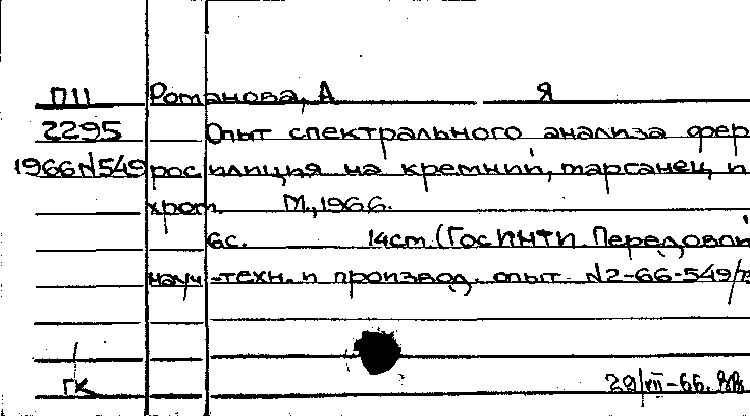 П11 Романова, А Я
2295 Опыт спектрального анализа фер
1966 N549 росилиция на кремний, марганец и
хром. М., 1966.
6с. 14см. (ГосИНТИ. Передовой
науч.-техн. и производ. опыт. N2-66-549/
ГК 29/VII-66.